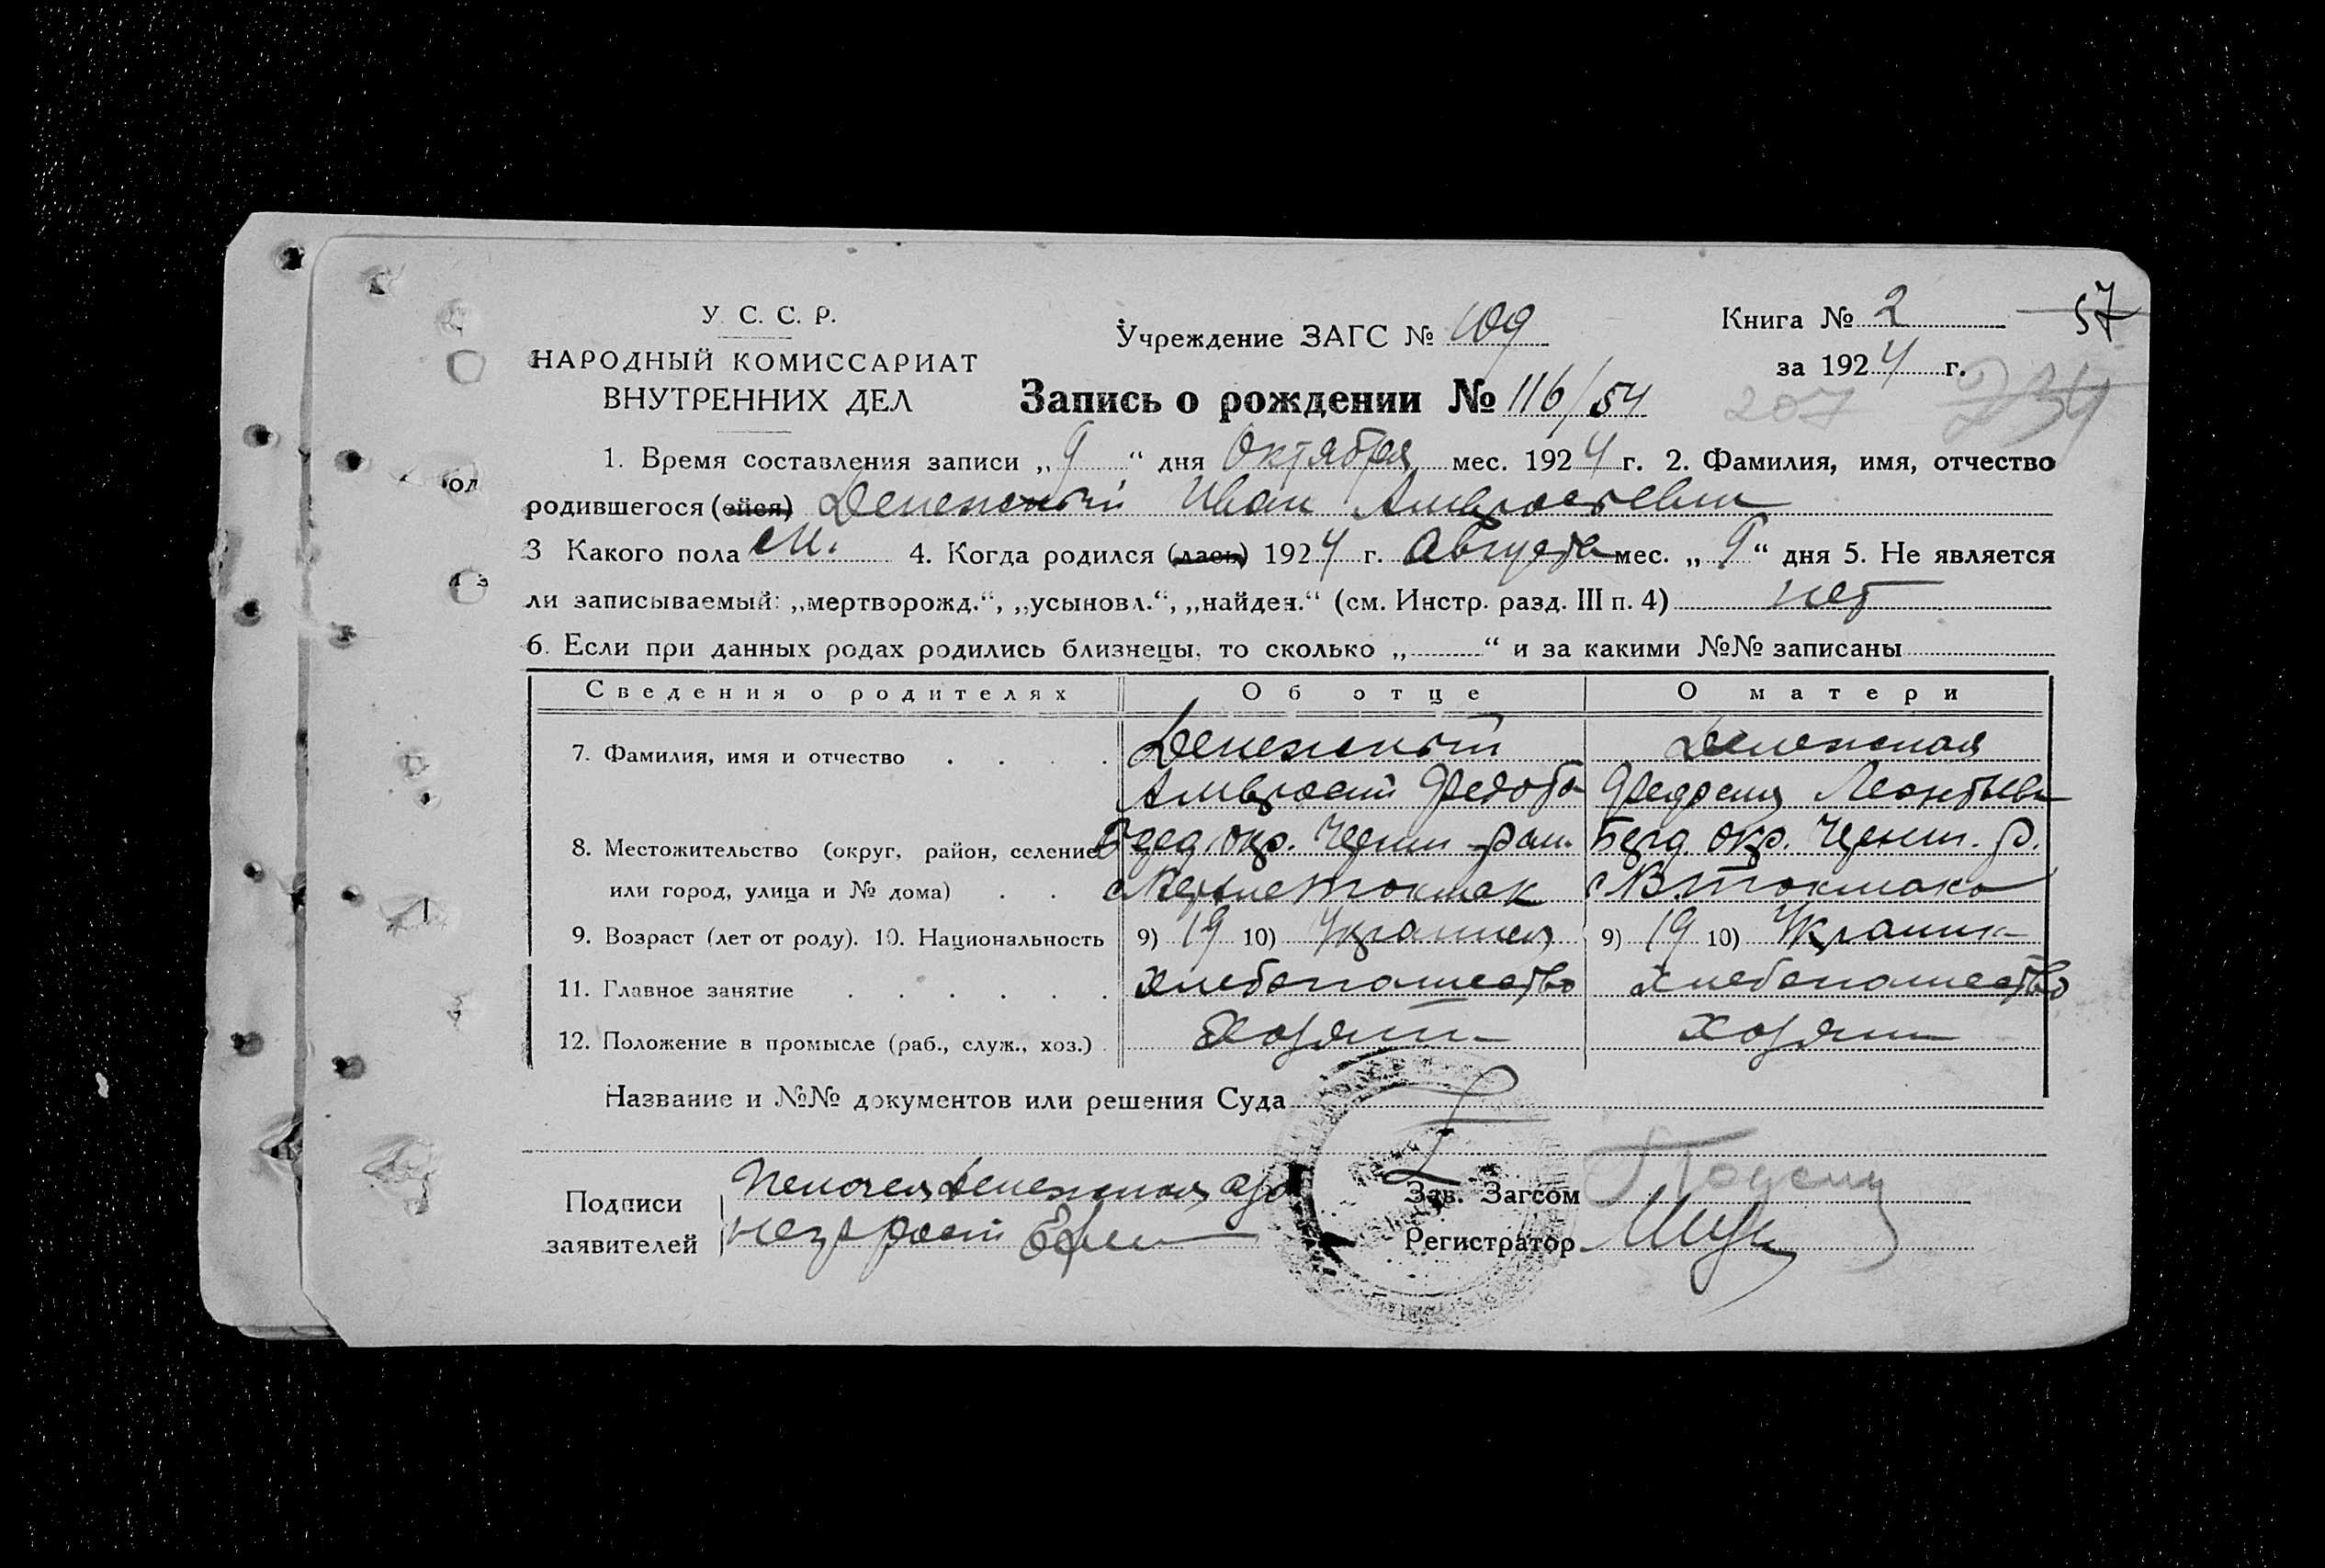 У. С. С. Р.
НАРОДНЫЙ КОМИССАРИАТ
ВНУТРЕННИХ ДЕЛ
Учреждение ЗАГС № 109
Книга № 2
57
за 1924 г.
Запись о рождении № 116/54
207 234
1. Время составления записи „9“ дня Октября мес. 1924 г. 2. Фамилия, имя, отчество
родившегося (ейся) Денежный Иван Амвросьевич
3 Какого пола м. 4. Когда родился (лась) 1924 г. Августа мес. „9“ дня 5. Не является
ли записываемый: „мертворожд.“, „усыновл.“, „найден.“ (см. Инстр. разд. III п. 4) нет
6. Если при данных родах родились близнецы, то сколько „ “ и за какими №№ записаны
Сведения о родителях Об отце О матери
7. Фамилия, имя и отчество Денежный Денежная
Амвросий Федоров Федосия Леонтьев
8. Местожительство (округ, район, селение Берд окр. Черниг рай. Берд. окр. Черниг. р.
или город, улица и № дома) с Верхне Токмак с В Токмак
9. Возраст (лет от роду). 10. Национальность 9) 19 10) Украинец 9) 19 10) Украин
11. Главное занятие Хлебопашество хлебопашество
12. Положение в промысле (раб., служ., хоз.) Хозяин Хозяин
Название и №№ документов или решения Суда
Подписи Денежная
заявителей
Зав. Загсом
Регистратор